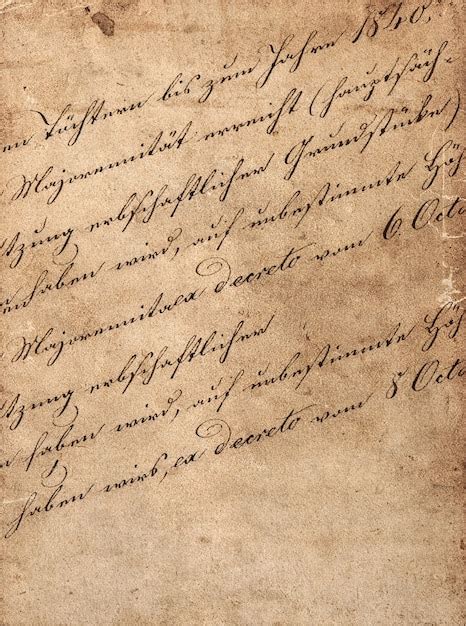 en Töchtern bis zum Jahre 1840,
Majorennität erreicht (hauptsäch-
tzung erbschaftlicher Grundstücke)
enhaben wird, auf unbestimmte Höh
Majorennita ex decreto vom 6 Octo
tzung erbschaftlicher
n haben wird, auf unbestimmte Höh
haben wirs, ex decreto vom 8 Octo